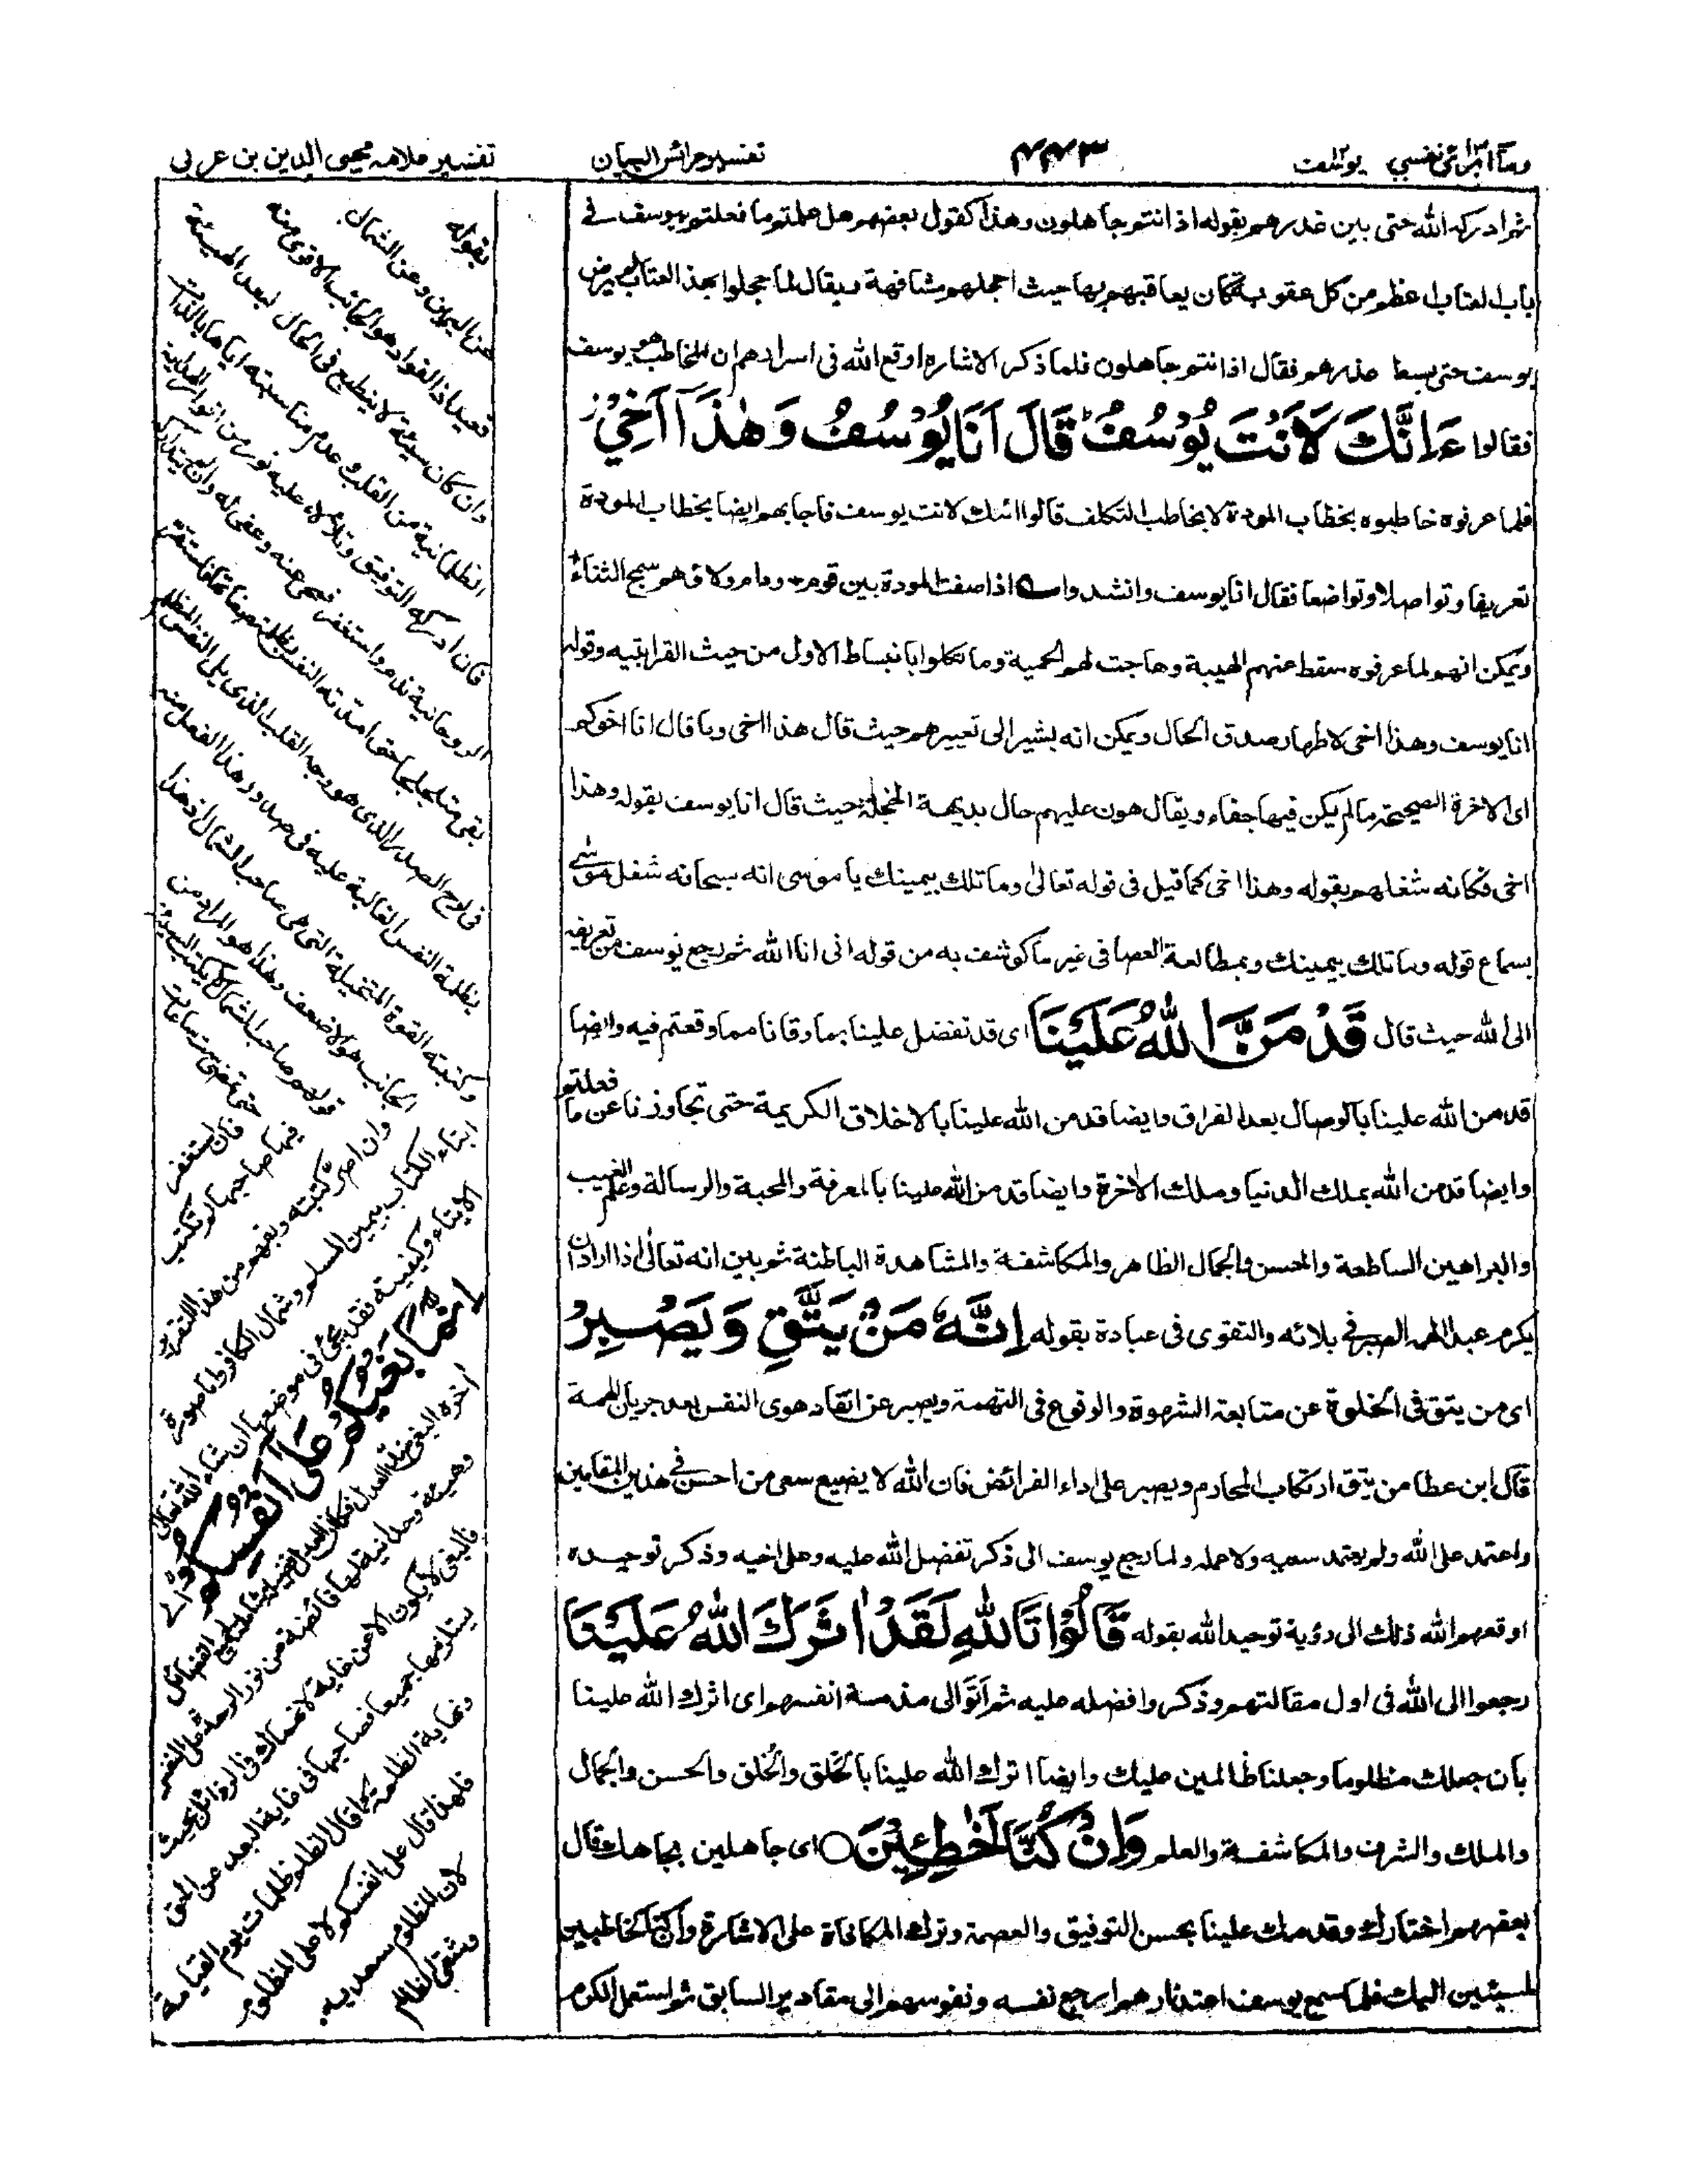 وما ابرئ نفسي ١٣ يوسف ١٢
٤٤٣
تفسير عرائس البيان
تفسير علامه محيى الدين بن عربى
ثم ادركه الله حتى بين عذرهم بقوله اذ انتم جاهلون وهذا كقول بعضهم هل علمتم ما فعلتم بيوسف فى
باب العتاب اعظم من كل عقوبة كان يعاقبهم بها حيث اخجلهم مشافهة ويقال لما خجلوا بهذا العتاب لم يرض
يوسف حتى بسط عذرهم فقال اذ انتم جاهلون فلما ذكر الاشاره اوقع الله فى اسرارهم ان المخاطب هو يوسف
فقالوا ءَاِنَّكَ لَاَنْتَ يُوْسُفُ قَالَ اَنَا يُوْسُفُ وَهٰذَآ اَخِيْ
فلما عرفوه خاطبوه بخطاب المودة لا بخاطب التكلف قالوا ائنك لانت يوسف فاجابهم ايضا بخطاب المودة
تعريفا وتواصلا وتواضعا فقال انا يوسف وانشدوا اذا صفت المودة بين قوم ودام ولاؤهم سمج الثناء
ويمكن انهم لما عرفوه سقط عنهم الهيبة وهاجت لهم الحمية وما تكلموا بانبساط الاول من حيث القرابتيه وقوله
انا يوسف وهذا اخى لاظهار صدق الحال ويمكن انه يشير الى تعييرهم حيث قال هذا اخى وما قال انا اخوكم
اى الاخرة الصحيحة ما لم يكن فيها جفاء ويقال هون عليهم حال بديهة الخجلة حيث قال انا يوسف بقوله وهذا
اخى فكانه شغلهم بقوله وهذا اخى كما قيل فى قوله تعالى وما تلك بيمينك يا موسى انه سبحانه شغل موسى
بسماع قوله وما تلك بيمينك وبمطالعة العصا فى غير ما كوشف به من قوله انى انا الله ثم رجع يوسف من تعريفه
الى الله حيث قال قَدْ مَنَّ اللّٰهُ عَلَيْنَا اى قد تفضل علينا بما وقانا مما وقعتم فيه وايضا
قد من الله علينا بالوصال بعد الفراق وايضا قد من الله علينا بالاخلاق الكريمة حتى تجاوزنا عن ما فعلتم
وايضا قد من الله بملك الدنيا وملك الاخرة وايضا قد من الله علينا بالمعرفة والمحبة والرسالة وعلم الغيب
والبراهين الساطعة والحسن والجمال الظاهر والمكاشفة والمشاهدة الباطنة ثم بين انه تعالى اذا اراد ان
يكرم عبدا الهمه الصبر فى بلائه والتقوى فى عبادة بقوله اِنَّهٗ مَنْ يَتَّقِ وَيَصْبِرْ
اى من يتق فى الخلوة عن متابعة الشهوة والوقوع فى التهمة ويصبر عن انقاد هوى النفس بعد جريان الهمة
قال ابن عطا من يتق ارتكاب المحارم ويصبر على اداء الفرائض فان الله لا يضيع سعى من احسن فى هذين المقامين
واعتمد على الله ولم يعتمد سعيه ولا عمله ولما رجع يوسف الى ذكر تفضل الله عليه وعلى اخيه وذكر توحيده
اوقعهم الله ذلك الى رؤية توحيد الله بقوله قَالُوْا تَاللّٰهِ لَقَدْ اٰثَرَكَ اللّٰهُ عَلَيْنَا
رجعوا الى الله فى اول مقالتهم وذكروا فضله عليه ثم اتوا الى مذمة انفسهم اى اثرك الله علينا
بان جعلك مظلوما وجعلنا ظالمين عليك وايضا اثرك الله علينا بالخَلق والخُلق والحسن والجمال
والملك والشرف والمكاشفة والعلم وَاِنْ كُنَّا لَخٰطِـِٕيْنَ اى جاهلين بجاهك قال
بعضهم اختارك وقدمك علينا بحسن التوفيق والعصمة وترك المكافاة على الاشارة وان كنا لخاطيين
لمسيئين اليك فلما سمع يوسف اعتذارهم رجع نفسه ونفوسهم الى مقادير السابق ثم استعمل الكرم
بقوله
عن اليمين وعن الشمال
قعيد اذ الفواد هو الجانب الاقوى منه
وان كان سيئة لا ينطبع فى الحال لبعد الهيئة
الظلمانية من القلب وعدم مناسبته اياها بالذات
فان ادركه التوفيق وتلألأ عليه نور من انوار الهداية
الروحانية ندم واستغفر فمحى عنه وعفى له وان لم يتداركه
بقى متلجلجا حتى امدته النفس بظلمة صفاتها فاستقر
فى لوح الصدر الذى هو وجه القلب الذى يلى النفس المظلم
بظلمة النفس الغالبة عليه فى صدور هذا الفعل منه
وكتبته القوة المتخيلة التى هى صاحب الشمال اذ هذا
الجانب هو الاضعف وهذا هو المراد من
قولهم صاحب الشمال لا يكتب السيئة
حتى تمضى ست ساعات
فان استغفر
فيها صاحبها لم تكتب
وان اصر كتبته ويفهم من هذا التقرير
ايتاء الكتاب بيمين المسلم وشمال الكافر واما صورة
الايتاء وكيفيته فقد يجئ فى موضعها ان شاء الله تعالى
اِنَّمَا بَغْيُكُمْ عَلٰٓى اَنْفُسِكُمْ
وهيئة وحدانية لها فائضة من نور الوحدة على النفس
فالبغى لا يكون الا عن غاية الانهماك فى الرذائل بحيث
يستلزمها جميعا فصاحبها فى غاية البعد عن الحق
ونهاية الظلمة كما قال الظلم ظلمات يوم القيامة
فلهذا قال على انفسكم لا على المظلوم
لان المظلوم سعد به
وشقى الظالم